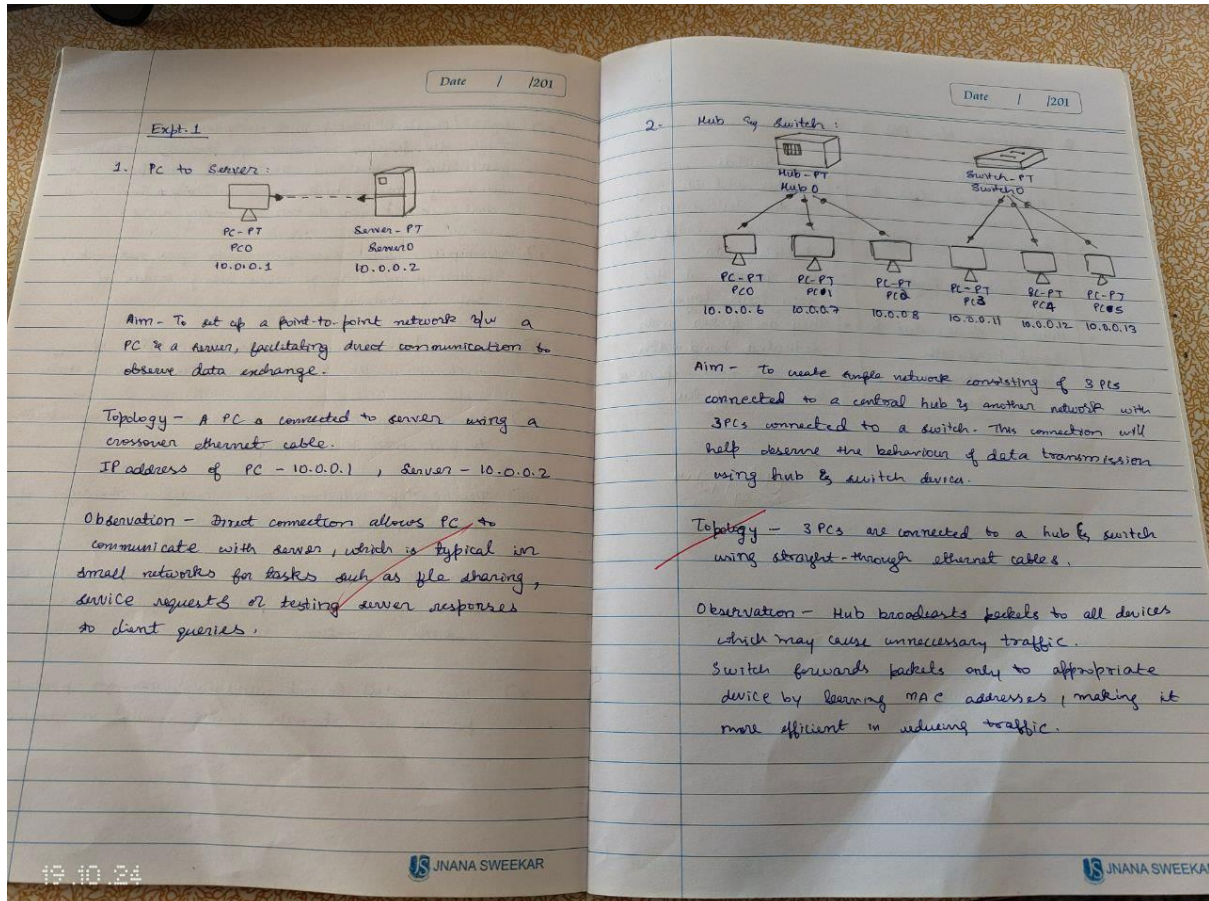 Date / /201
Expt. 1
1. PC to Server :
PC-PT
PC0
10.0.0.1
Server-PT
Server0
10.0.0.2
Aim - To set up a point-to-point network b/w a
PC & a server, facilitating direct communication to
observe data exchange.
Topology - A PC is connected to server using a
crossover ethernet cable.
IP address of PC - 10.0.0.1 , Server - 10.0.0.2
Observation - Direct connection allows PC to
communicate with server, which is typical in
small networks for tasks such as file sharing,
service requests or testing server responses
to client queries.
19.10.24
JS JNANA SWEEKAR
Date / /201
2. Hub & Switch :
Hub-PT
Hub 0
Switch-PT
Switch0
PC-PT
PC0
10.0.0.6
PC-PT
PC1
10.0.0.7
PC-PT
PC2
10.0.0.8
PC-PT
PC3
10.0.0.11
PC-PT
PC4
10.0.0.12
PC-PT
PC5
10.0.0.13
Aim - To create simple network consisting of 3 PCs
connected to a central hub & another network with
3PCs connected to a switch. This connection will
help observe the behaviour of data transmission
using hub & switch device.
Topology - 3 PCs are connected to a hub & switch
using straight-through ethernet cables.
Observation - Hub broadcasts packets to all devices
which may cause unnecessary traffic.
Switch forwards packets only to appropriate
device by learning MAC addresses, making it
more efficient in reducing traffic.
JS JNANA SWEEKA